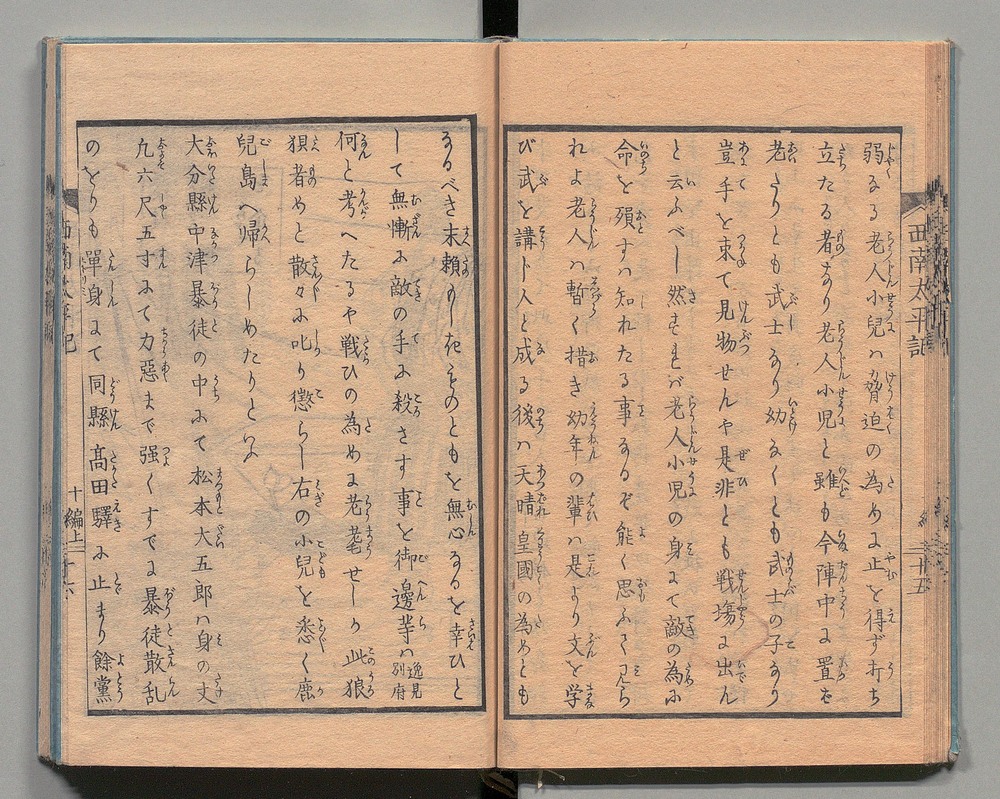 弱なる老人小兒ハ脅迫の為めに止を得ず打ち
立たる者なり老人小児と雖も今陣中に置を
老たりとも武士なり幼なくとも武士の子なり
豈手を束て見物せんや是非とも戦塲に出ん
と云ふべし然すれバ老人小児の身にて敵の為に
命を殞すハ知れたる事なるぞ能く思ふて見ら
れよ老人ハ暫く措き幼年の輩ハ是より文を学
び武を講じ人と成る後ハ天晴皇國の為めとも
西南太平記
二十五
なるべき末頼もしきものともを無心なるを幸ひと
して無慚に敵の手に殺さす事を御邊等ハ逸見別府
何と考へたるや戦ひの為めに老耄せしか此狼
狽者めと散々に叱り懲らし右の小兒を悉く鹿
兒島へ帰らしめたりとぞ
大分縣中津暴徒の中にて松本大五郎ハ身の丈
九六尺五寸にて力惡まで强くすでに暴徒散乱
のをりも單身にて同縣髙田驛に止まり餘黨
西南太平記
十編上
二十六